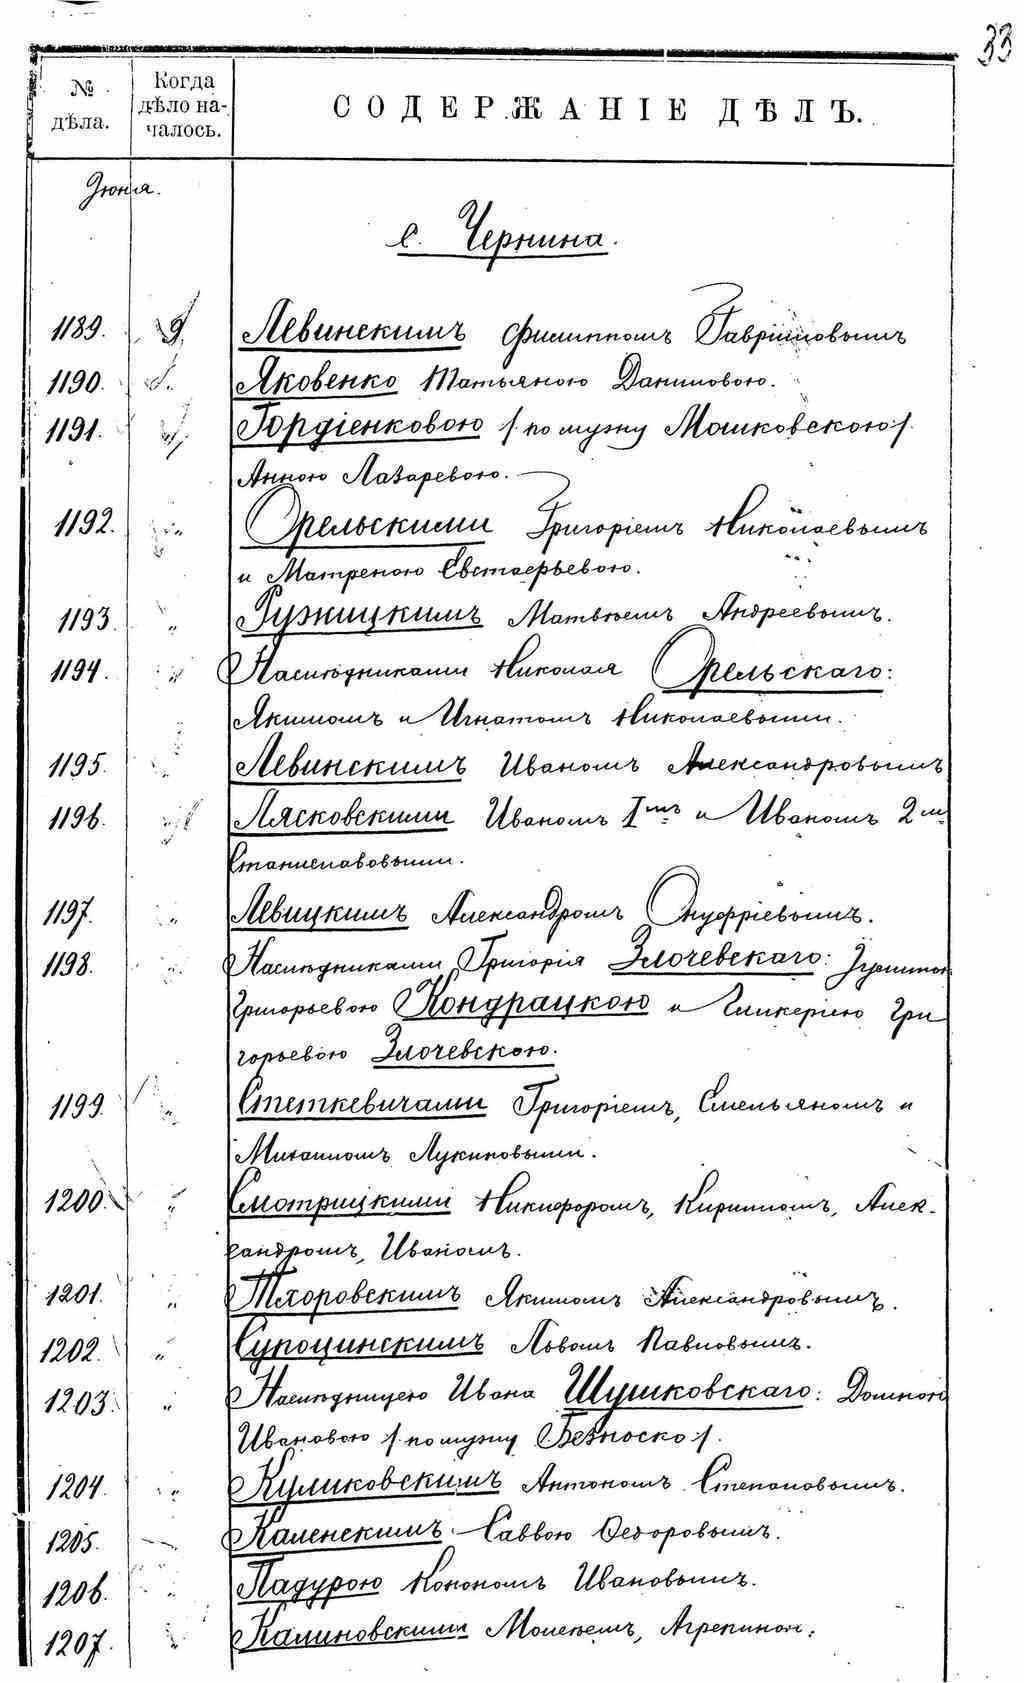 33
№ дѣла. Когда дѣло началось. СОДЕРЖАНІЕ ДѢЛЪ.
Іюня.
с. Чернина.
1189. 9 Левинскимъ Филиппомъ Гавріиловымъ
1190. „ Яковенко Татьяною Даниловою.
1191. „ Гордіенковою /:по мужу Мошковскою:/
Анною Лазаревою.
1192. „ Орельскими Григоріемъ Николаевымъ
и Матреною Евстафьевою.
1193. „ Ружицкимъ Матвѣемъ Андреевымъ.
1194. „ Наслѣдниками Николая Орельскаго:
Якимомъ и Игнатомъ Николаевыми.
1195. „ Левинскимъ Иваномъ Александровымъ
1196. „ Лясковскими Иваномъ 1мъ и Иваномъ 2м
Станиславовыми.
1197. „ Левицкимъ Александромъ Онуфріевымъ.
1198. „ Наслѣдниками Григорія Злочевскаго:
Григорьевою Кондрацкою и Гликеріею Гри
горьевою Злочевскою.
1199. „ Стеткевичами Григоріемъ, Емельяномъ и
Михаиломъ Лукиновыми.
1200. „ Смотрицкими Никифоромъ, Кирилломъ, Алек-
сандромъ, Иваномъ.
1201. „ Тхоровскимъ Якимомъ Александровымъ.
1202. „ Супоцинскимъ Львомъ Павловымъ.
1203. „ Наслѣдницею Ивана Шушковскаго: Домною
Ивановою /:по мужу Безноско:/.
1204. „ Куликовскимъ Антономъ Степановымъ.
1205. Каленскимъ Саввою Ѳедоровымъ.
1206. „ Падурою Конономъ Ивановымъ.
1207. „ Калиновскими Моисеемъ, Агрепиною;